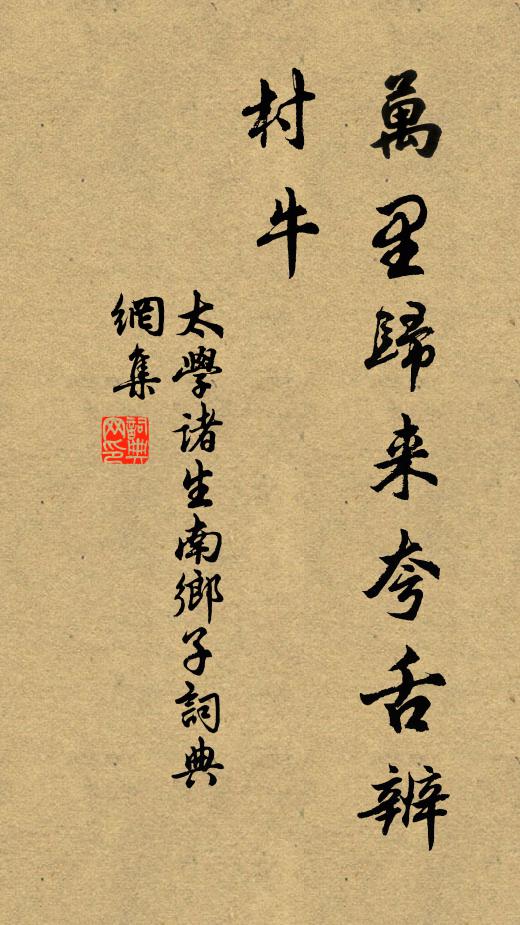 萬里歸来夸舌辨
村牛
太學諸生南鄉子詞典
網集
詞典
网印